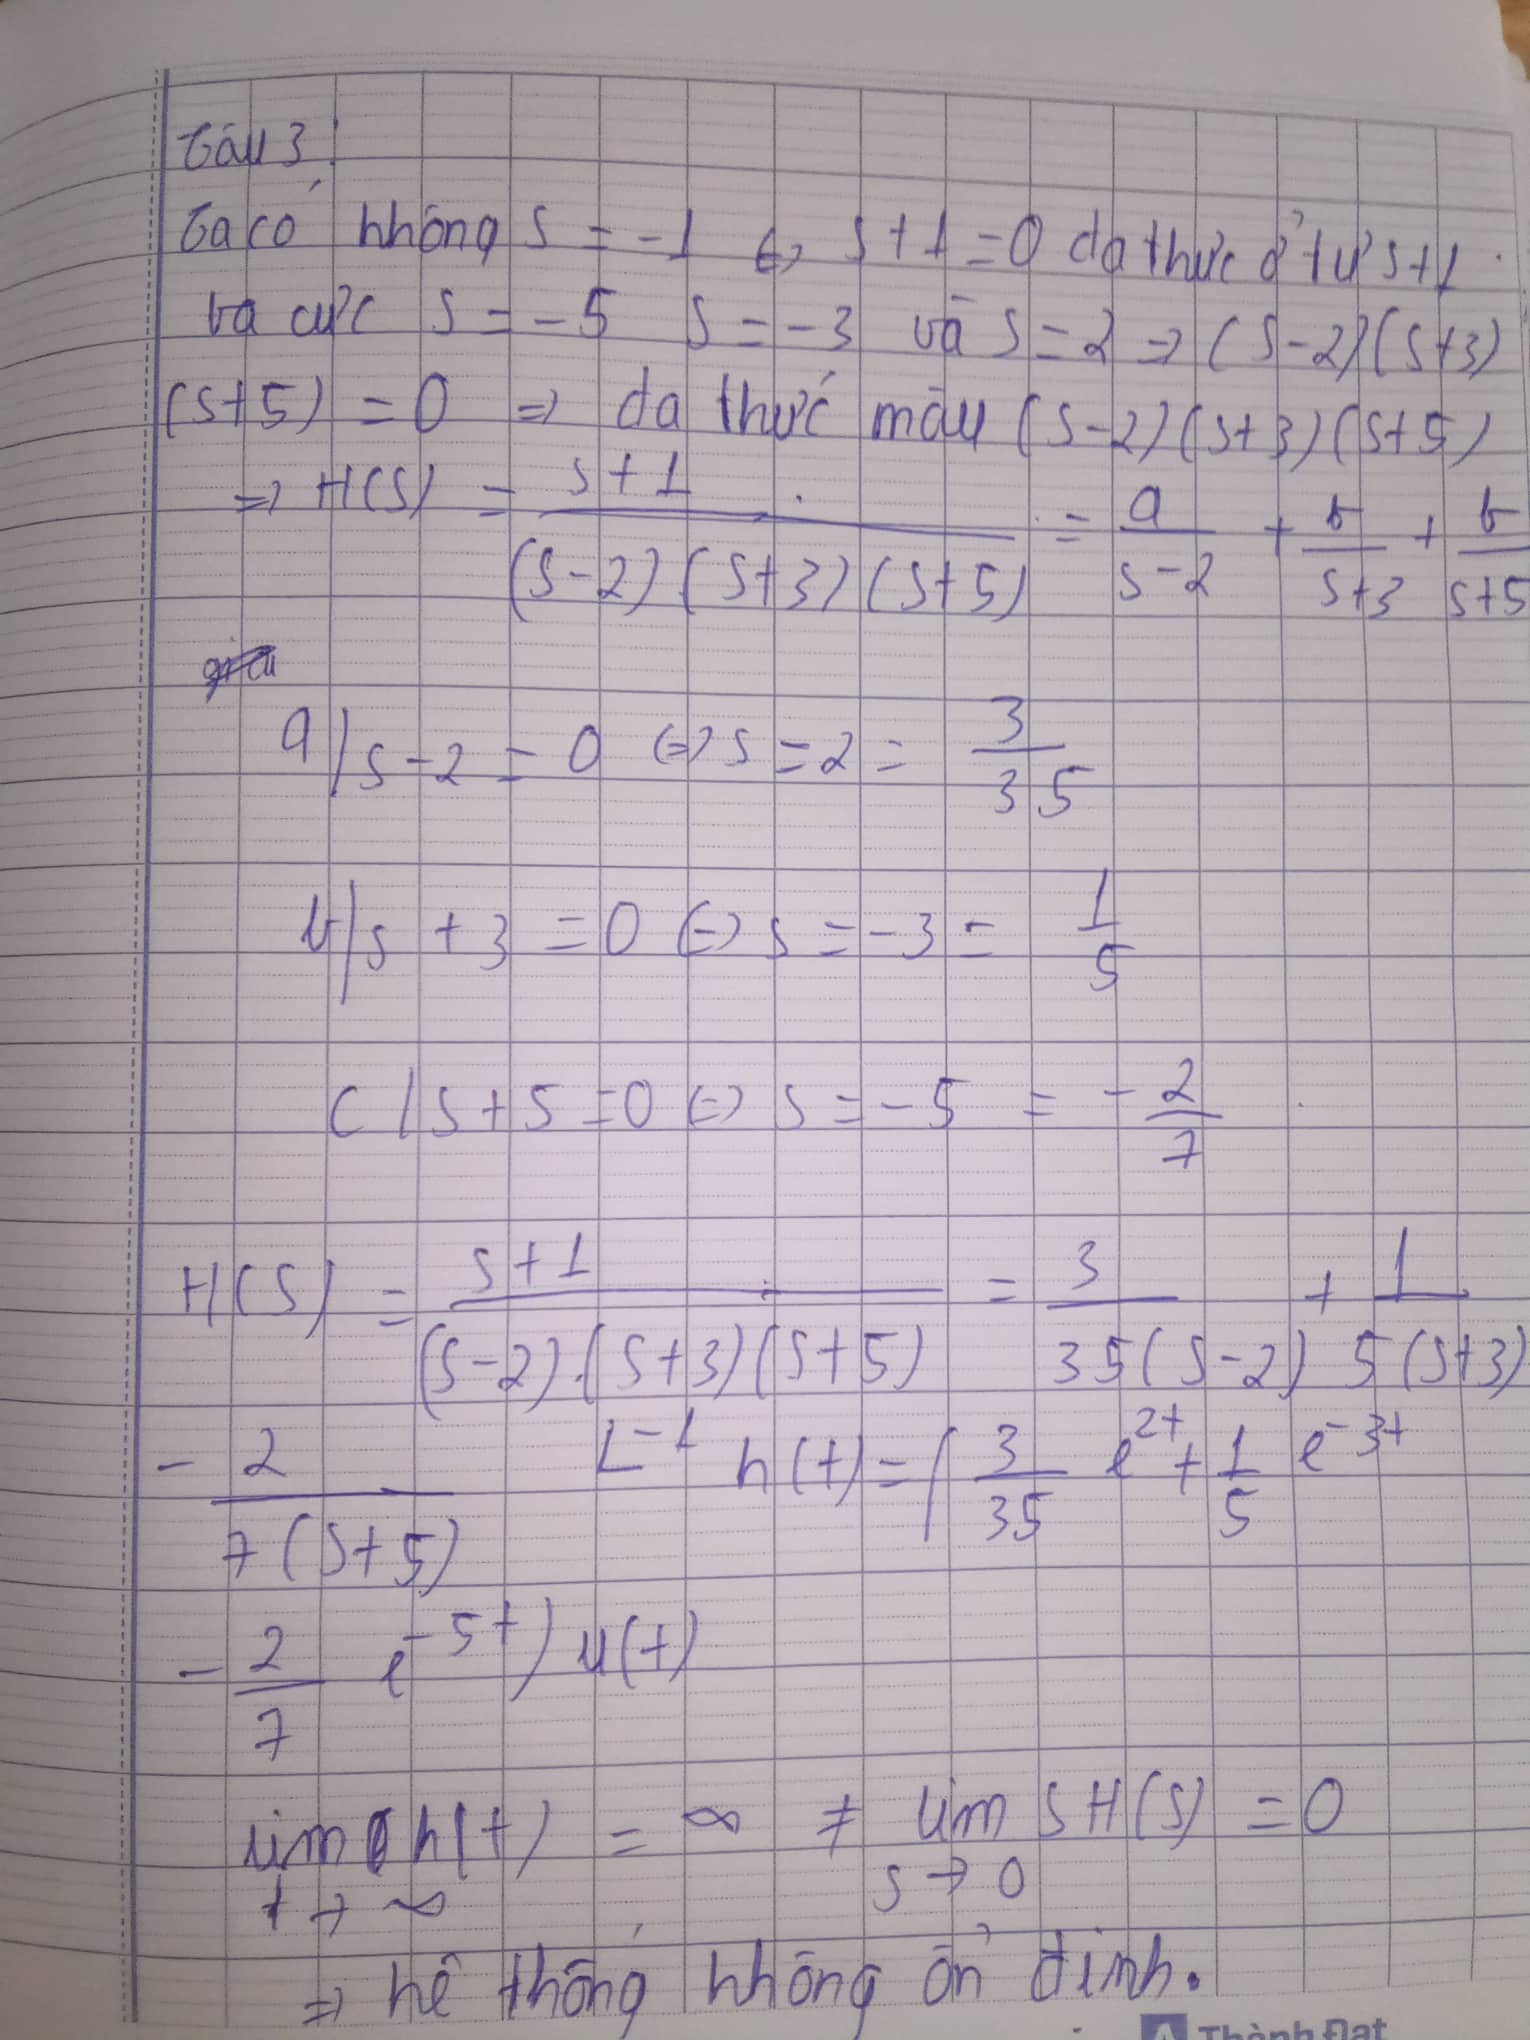 Câu 3:
Ta có không s = -1 <=> s+1=0 đa thức ở tử s+1.
va cực s = -5 s = -3 và s = 2 => (s-2)(s+3)
(s+5) = 0 => đa thức mẫu (s-2)(s+3)(s+5)
=> H(s) = s+1 / (s-2)(s+3)(s+5) = a / s-2 + b / s+3 + b / s+5
a | s-2 = 0 <=> s = 2 = 3/35
b | s+3 = 0 <=> s = -3 = 1/5
c | s+5 = 0 <=> s = -5 = - 2/7.
H(s) = s+1 / (s-2).(s+3)(s+5) = 3 / 35(s-2) + 1 / 5(s+3)
- 2 / 7(s+5) L^-1 h(t) = ( 3/35 e^2t + 1/5 e^-3t
- 2/7 e^-5t) u(t)
lim h(t) = ∞ ≠ lim sH(s) = 0
t → ∞ s → 0
=> hệ thống không ổn định.
Thành Đạt